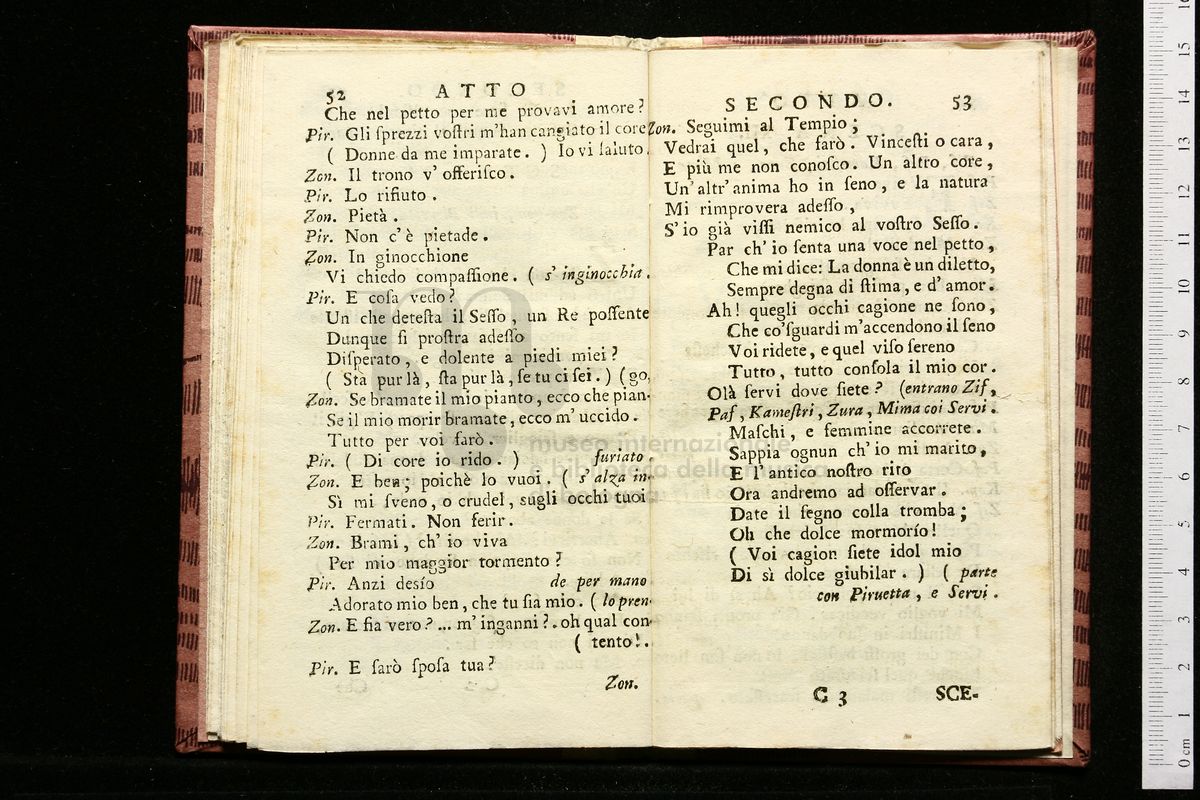 52 ATTO
Che nel petto per me provavi amore?
Pir. Gli ſprezzi voſtri m'han cangiato il core
( Donne da me imparate. ) Io vi ſaluto.
Zon. Il trono v' offeriſco.
Pir. Lo rifiuto.
Zon. Pietà.
Pir. Non c'è pietade.
Zon. In ginocchione
Vi chiedo compaſſione. ( s' inginocchia.
Pir. E coſa vedo?
Un che deteſta il Seſſo, un Re poſſente
Dunque ſi proſtra adeſſo
Diſperato, e dolente a piedi miei?
( Sta pur là, ſta pur là, ſe tu ci ſei. ) (go,
Zon. Se bramate il mio pianto, ecco che pian-
Se il mio morir bramate, ecco m' uccido.
Tutto per voi farò.
Pir. ( Di core io rido. ) furiato.
Zon. E ben; poichè lo vuoi. ( s' alza in-
Sì mi ſveno, o crudel, sugli occhi tuoi
Pir. Fermati. Non ferir.
Zon. Brami, ch' io viva
Per mio maggior tormento?
Pir. Anzi desío de per mano
Adorato mio ben, che tu ſia mio. ( lo pren-
Zon. E fia vero? ... m' inganni?. oh qual con-
( tento!.
Pir. E ſarò ſpoſa tua?
Zon.
SECONDO. 53
Zon. Seguimi al Tempio;
Vedrai quel, che farò. Vinceſti o cara,
E più me non conoſco. Un altro core,
Un' altr' anima ho in ſeno, e la natura
Mi rimprovera adeſſo,
S' io già viſſi nemico al voſtro Seſſo.
Par ch' io ſenta una voce nel petto,
Che mi dice: La donna è un diletto,
Sempre degna di ſtima, e d' amor.
Ah! quegli occhi cagione ne ſono,
Che co'ſguardi m'accendono il ſeno
Voi ridete, e quel viſo ſereno
Tutto, tutto conſola il mio cor.
Olà ſervi dove ſiete? (entrano Zif,
Paf, Kameſtri, Zura, Mima coi Servi.
Maſchi, e femmine accorrete.
Sappia ognun ch' io mi marito,
E l' antico noſtro rito
Ora andremo ad oſſervar.
Date il ſegno colla tromba;
Oh che dolce mormorío!
( Voi cagion ſiete idol mio
Di sì dolce giubilar. ) ( parte
con Piruetta, e Servi.
C 3 SCE-
museo internazionale
e biblioteca della musica
0 cm 1 2 3 4 5 6 7 8 9 10 11 12 13 14 15 16